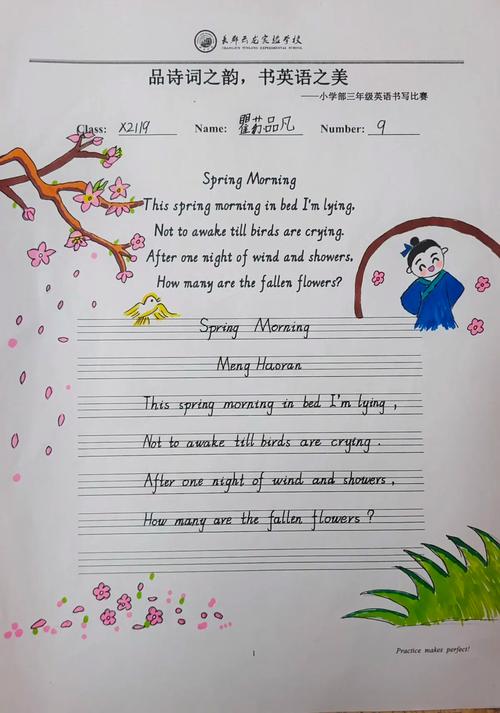 长郡云龙实验学校
CHANGJUN YUNLONG EXPERIMENTAL SCHOOL
品诗词之韵，书英语之美
——小学部三年级英语书写比赛
Class: X2119 Name: 瞿苏品凡 Number: 9
Spring Morning
This spring morning in bed I'm lying,
Not to awake till birds are crying.
After one night of wind and showers,
How many are the fallen flowers?
Spring Morning
Meng Haoran
This spring morning in bed I'm lying,
Not to awake till birds are crying.
After one night of wind and showers,
How many are the fallen flowers?
1
Practice makes perfect!